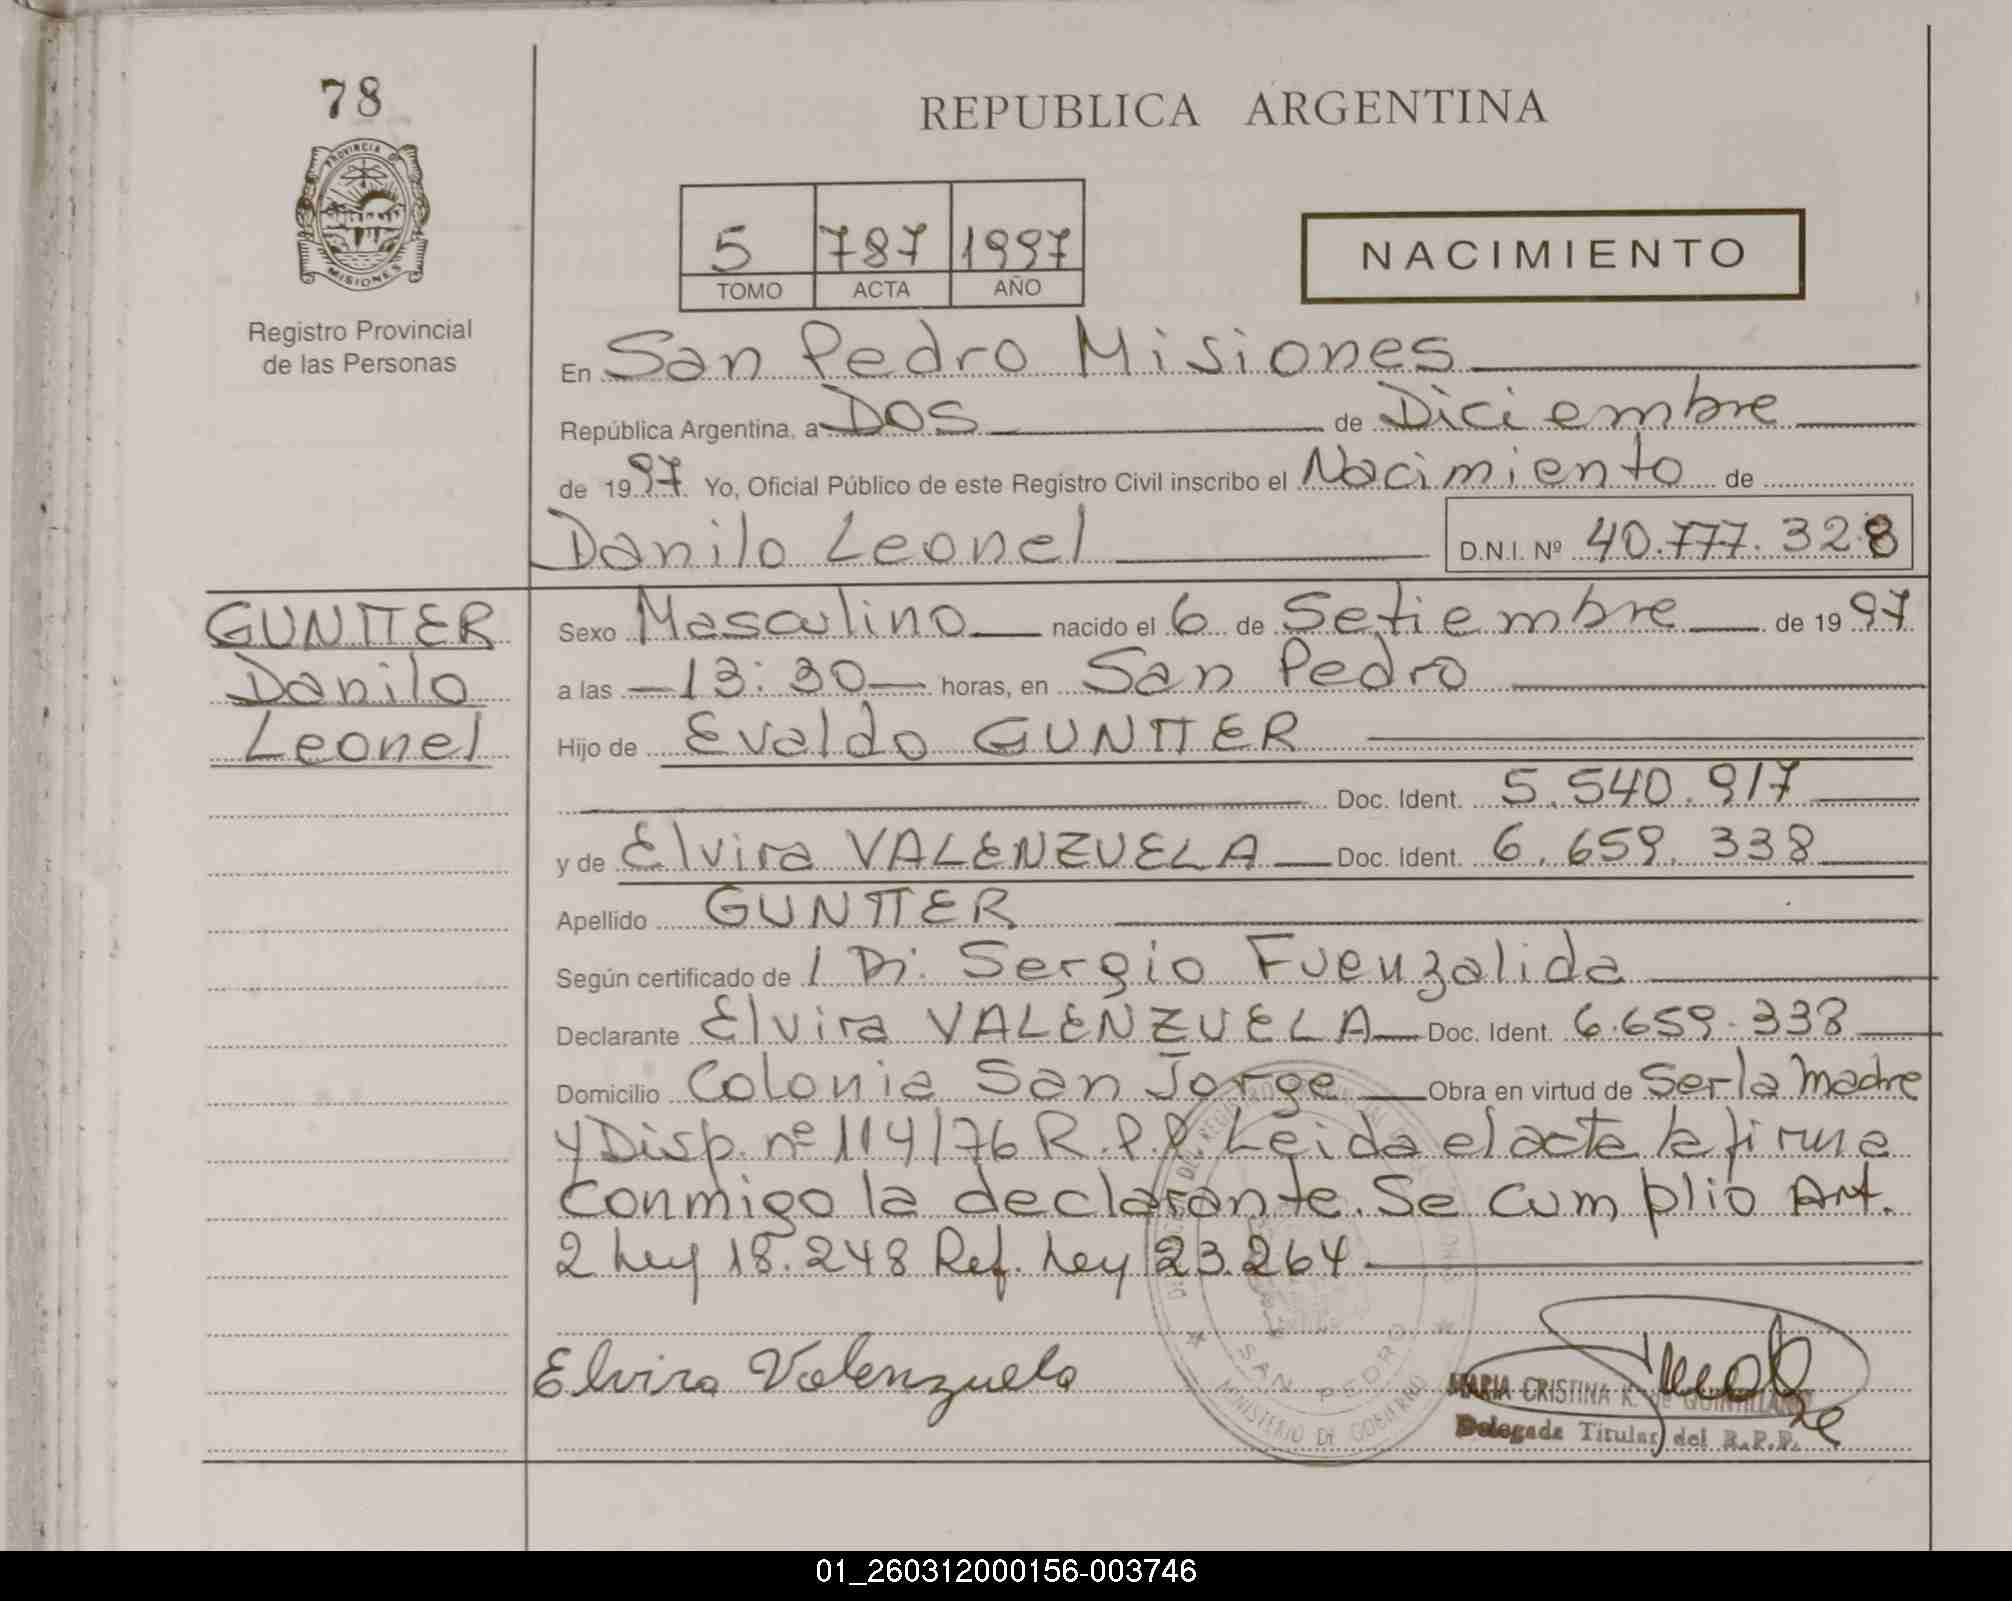 78
PROVINCIA DE
MISIONES
Registro Provincial
de las Personas
REPUBLICA ARGENTINA
5 787 1997
TOMO ACTA AÑO
NACIMIENTO
En San Pedro Misiones
República Argentina, a Dos de Diciembre
de 1997. Yo, Oficial Público de este Registro Civil inscribo el Nacimiento de
Danilo Leonel D.N.I. Nº 40.777.328
GUNTTER
Danilo
Leonel
Sexo Masculino nacido el 6 de Setiembre de 1997
a las 13:30 horas, en San Pedro
Hijo de Evaldo GUNTTER
Doc. Ident. 5.540.917
y de Elvira VALENZUELA Doc. Ident. 6.659.338
Apellido GUNTTER
Según certificado de / Dr. Sergio Fuenzalida
Declarante Elvira VALENZUELA Doc. Ident. 6.659.338
Domicilio Colonia San Jorge Obra en virtud de Ser la madre
y Disp. nº 114/76 R.P.P. Leida el acta la firma
conmigo la declarante. Se cumplio Art.
2 Ley 18.248 Ref. Ley 23.264
Elvira Valenzuela
SAN PEDRO
MINISTERIO DE GOBIERNO
MARIA CRISTINA K. de QUINTILLAN
Delegada Titular del R.P.P.
01_260312000156-003746